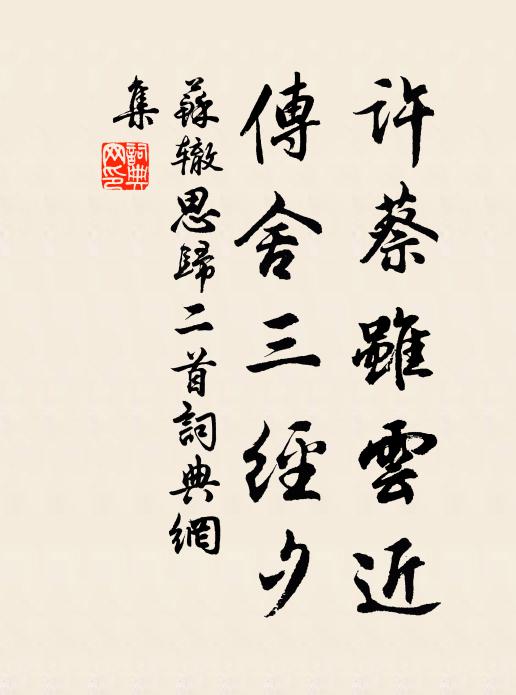 許蔡雖雲近
傳舍三經夕
蘇辙思歸二首詞典網
集
詞典
网印